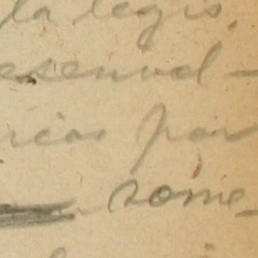 la legis.
esenvol-
icas por
some-